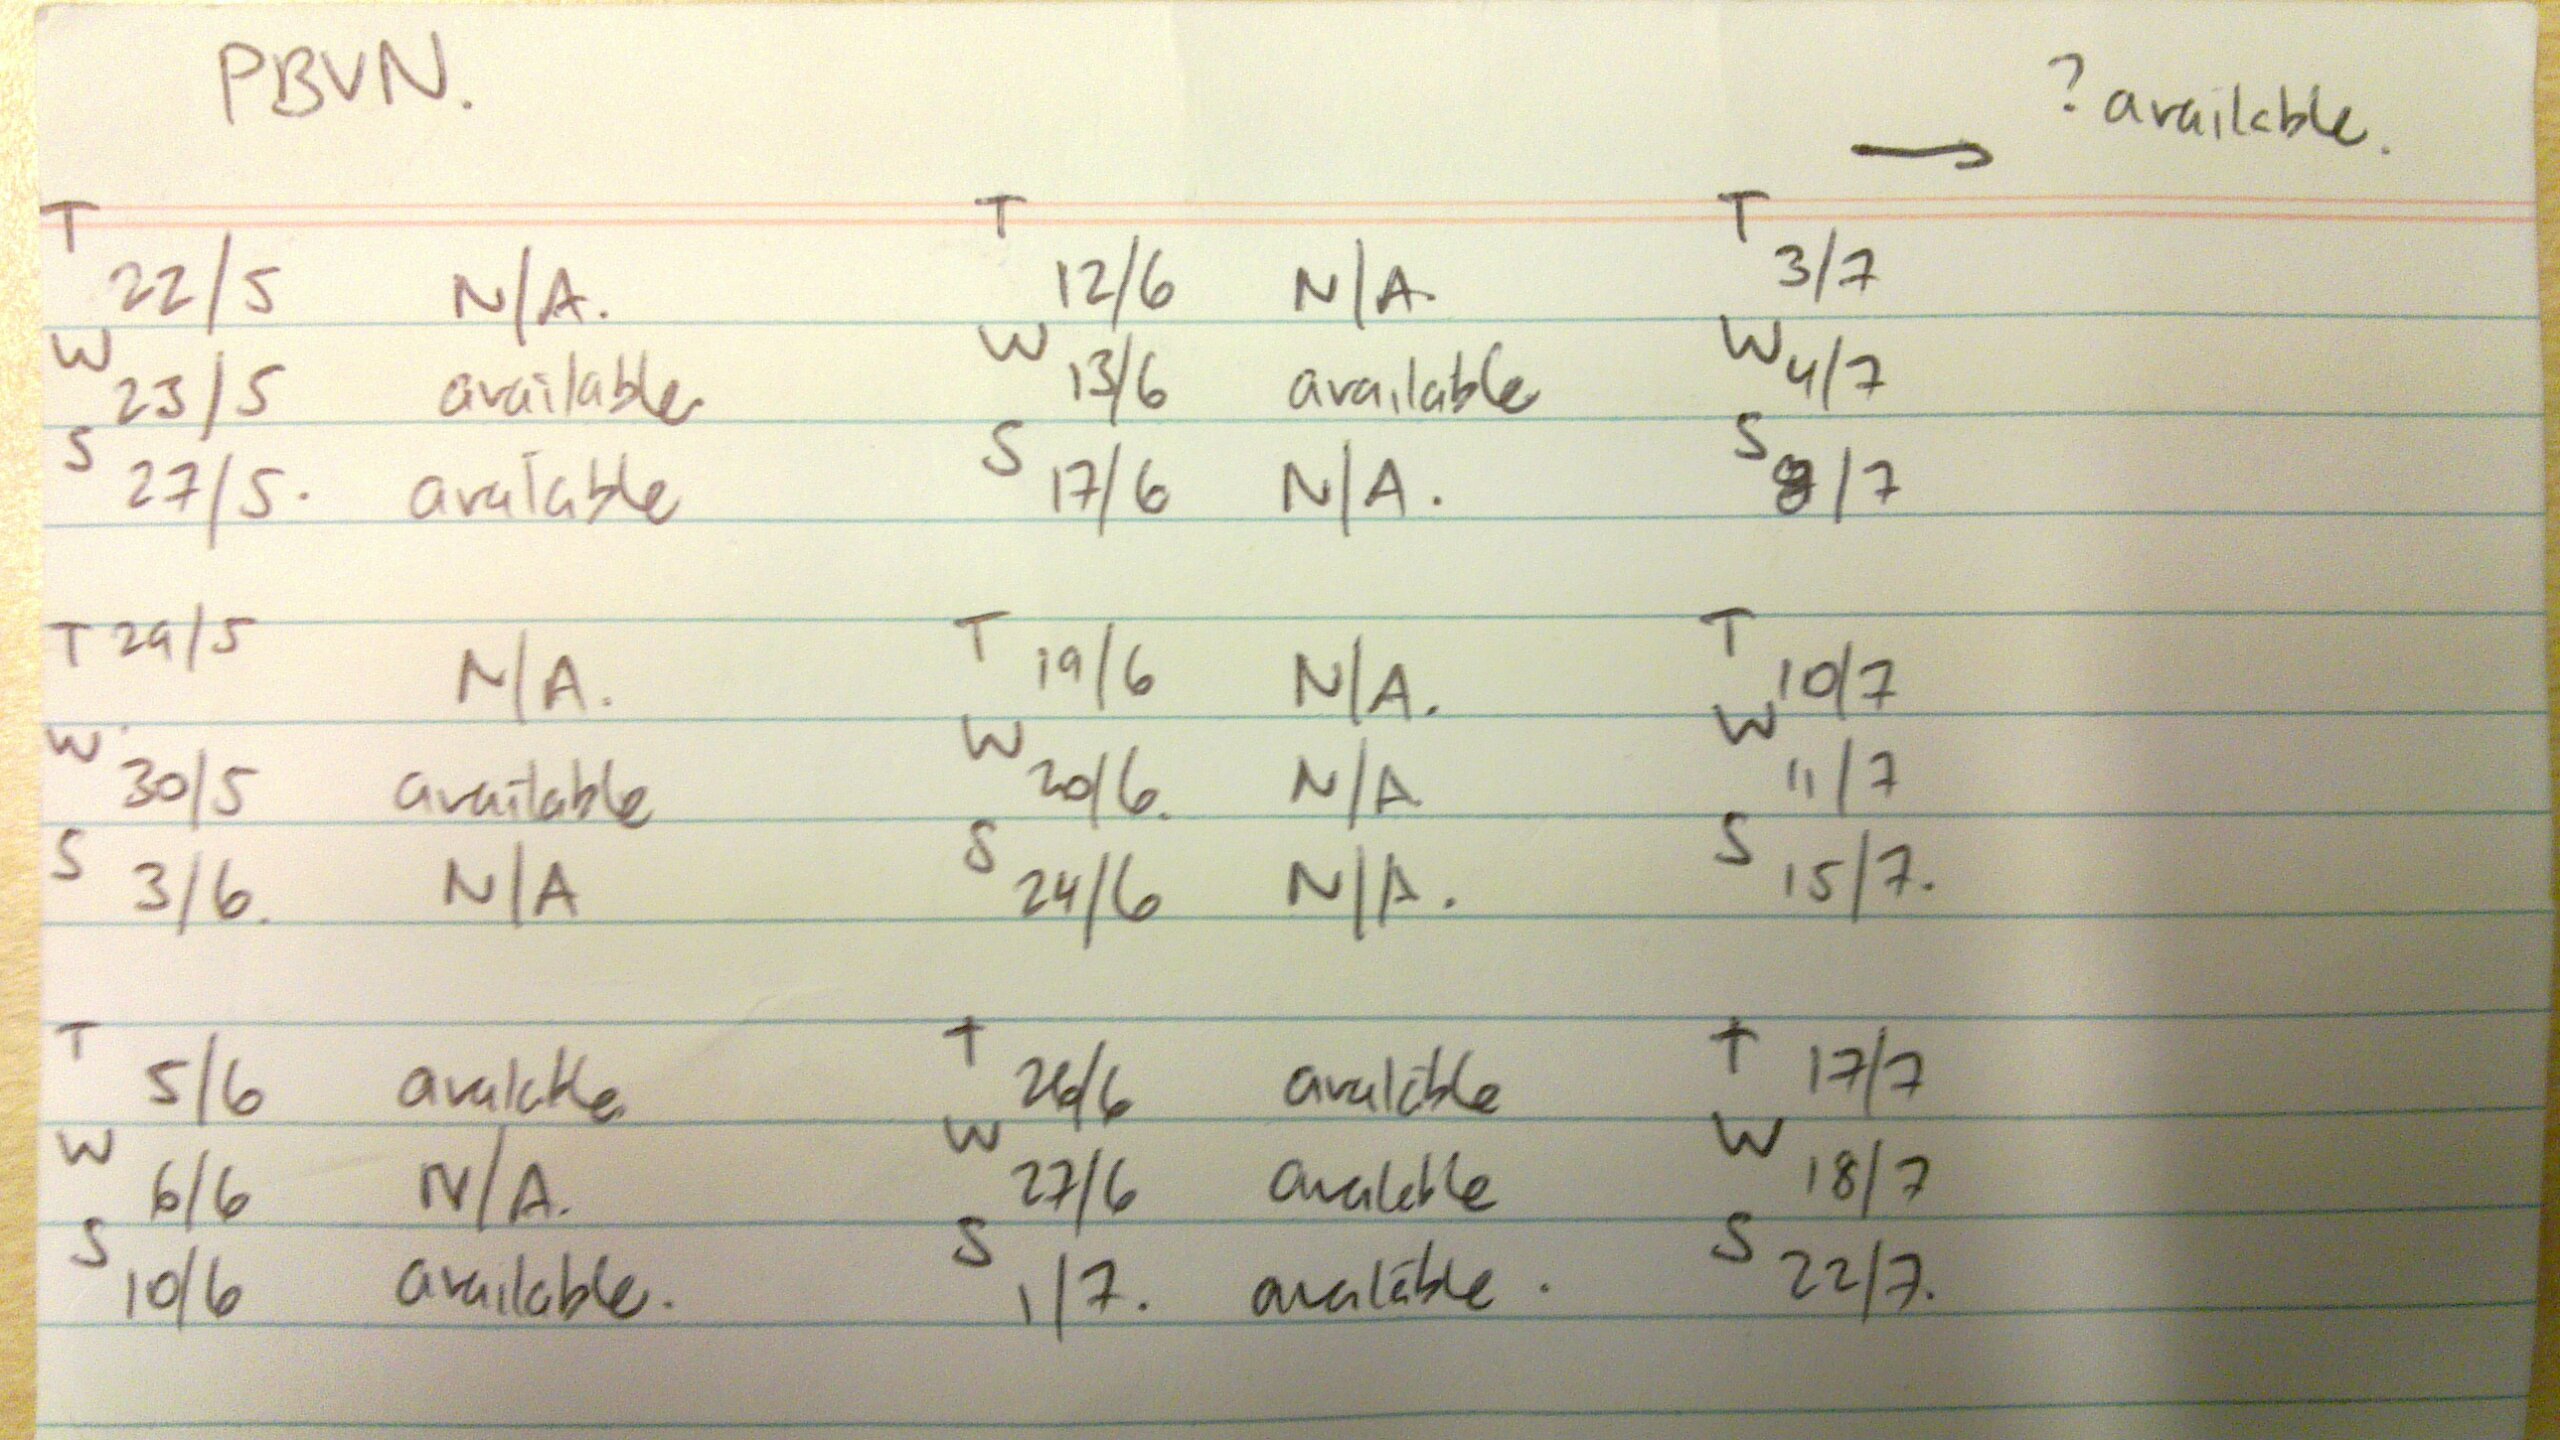 PBVN.
→ ? available.
T 22/5 N/A. T 12/6 N/A. T 3/7
W 23/5 available W 13/6 available W 4/7
S 27/5. available S 17/6 N/A. S 8/7
T 29/5 N/A. T 19/6 N/A. T 10/7
W 30/5 available W 20/6. N/A W 11/7
S 3/6. N/A S 24/6 N/A. S 15/7.
T 5/6 available T 26/6 available T 17/7
W 6/6 N/A. W 27/6 available W 18/7
S 10/6 available. S 1/7. available. S 22/7.